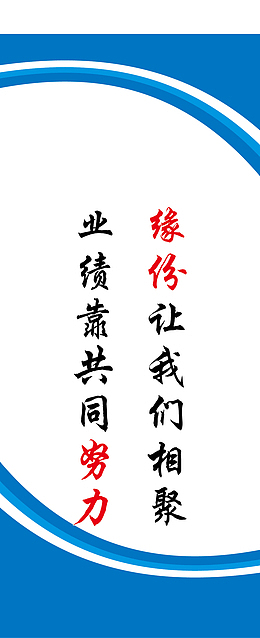 缘份让我们相聚
业绩靠共同努力